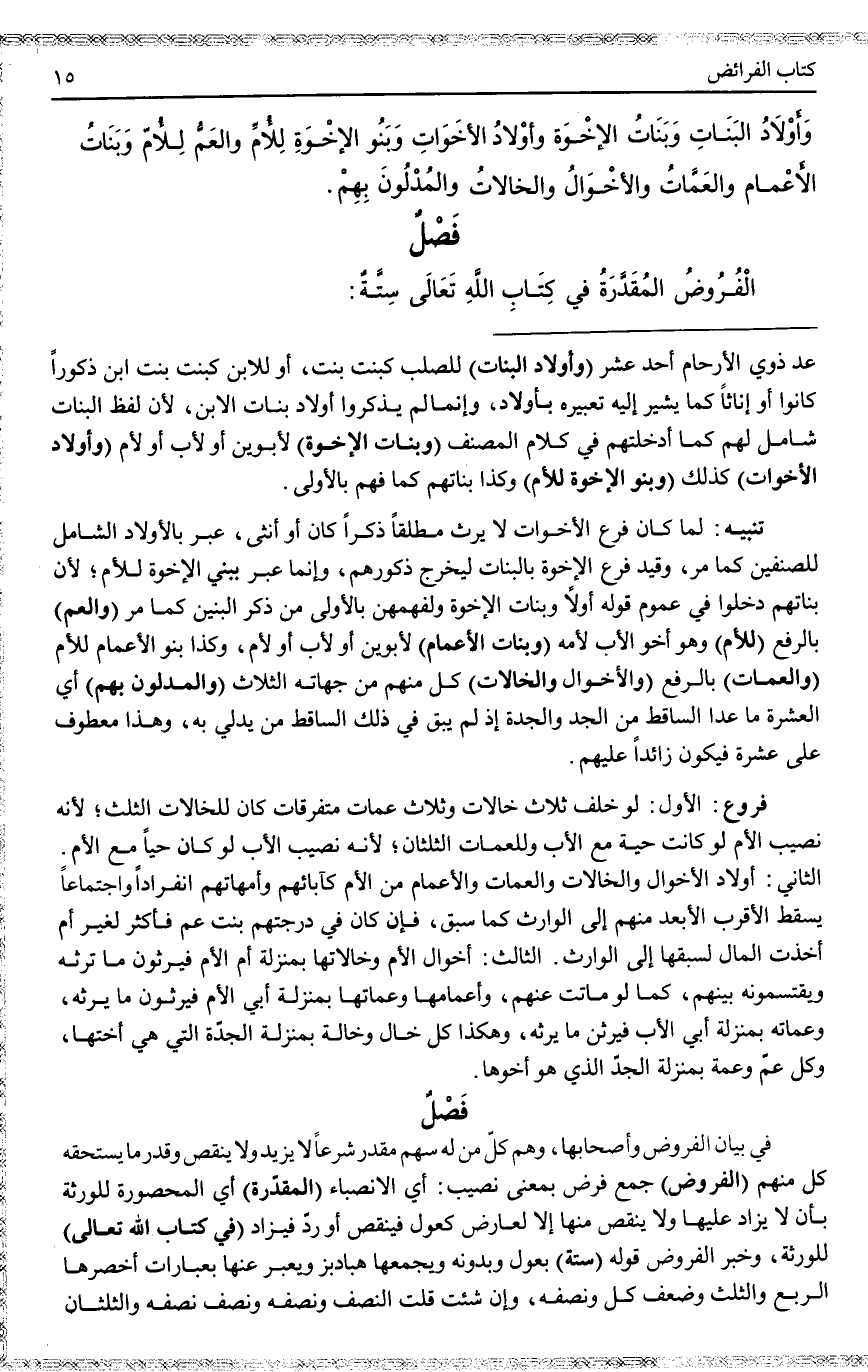 كتاب الفرائض ١٥
وَأَوْلَادُ البَنَاتِ وَبَنَاتُ الإخْوَة وأوْلادُ الأخَوَاتِ وَبَنُو الإخْوَةِ لِلأُمِّ والعَمُّ لِلأُمّ وَبَنَاتُ
الأَعْمام والعَمَّاتُ والأخْوَالُ والخالاتُ والمُدْلُونَ بِهِمْ.
فَصْلٌ
الْفُرُوضُ المُقَدَّرَةُ في كِتَابِ اللَّهِ تَعَالَى سِتَّةٌ:
عد ذوي الأرحام أحد عشر (وأولاد البنات) للصلب كبنت بنت، أو للابن كبنت بنت ابن ذكوراً
كانوا أو إناثاً كما يشير إليه تعبيره بأولاد، وإنما لم يذكروا أولاد بنات الابن، لأن لفظ البنات
شامل لهم كما أدخلتهم في كلام المصنف (وبنات الإخوة) لأبوين أو لأب أو لأم (وأولاد
الأخوات) كذلك (وبنو الإخوة للأم) وكذا بناتهم كما فهم بالأولى.
تنبيه: لما كان فرع الأخوات لا يرث مطلقاً ذكراً كان أو أنثى، عبر بالأولاد الشامل
للصنفين كما مر، وقيد فرع الإخوة بالبنات ليخرج ذكورهم، وإنما عبر ببني الإخوة للأم؛ لأن
بناتهم دخلوا في عموم قوله أولاً وبنات الإخوة ولفهمهن بالأولى من ذكر البنين كما مر (والعم)
بالرفع (للأم) وهو أخو الأب لأمه (وبنات الأعمام) لأبوين أو لأب أو لأم، وكذا بنو الأعمام للأم
(والعمات) بالرفع (والأخوال والخالات) كل منهم من جهاته الثلاث (والمدلون بهم) أي
العشرة ما عدا الساقط من الجد والجدة إذ لم يبق في ذلك الساقط من يدلي به، وهذا معطوف
على عشرة فيكون زائداً عليهم.
فروع: الأول: لو خلف ثلاث خالات وثلاث عمات متفرقات كان للخالات الثلث؛ لأنه
نصيب الأم لو كانت حية مع الأب وللعمات الثلثان؛ لأنه نصيب الأب لو كان حياً مع الأم.
الثاني: أولاد الأخوال والخالات والعمات والأعمام من الأم كآبائهم وأمهاتهم انفراداً واجتماعاً
يسقط الأقرب الأبعد منهم إلى الوارث كما سبق، فإن كان في درجتهم بنت عم فأكثر لغير أم
أخذت المال لسبقها إلى الوارث. الثالث: أخوال الأم وخالاتها بمنزلة أم الأم فيرثون ما ترثه
ويقتسمونه بينهم، كما لو ماتت عنهم، وأعمامها وعماتها بمنزلة أبي الأم فيرثون ما يرثه،
وعماته بمنزلة أبي الأب فيرثن ما يرثه، وهكذا كل خال وخالة بمنزلة الجدّة التي هي أختها،
وكل عمّ وعمة بمنزلة الجدّ الذي هو أخوها.
فَصْلٌ
في بيان الفروض وأصحابها، وهم كلّ من له سهم مقدر شرعاً لا يزيد ولا ينقص وقدر ما يستحقه
كل منهم (الفروض) جمع فرض بمعنى نصيب: أي الانصباء (المقدّرة) أي المحصورة للورثة
بأن لا يزاد عليها ولا ينقص منها إلا لعارض كعول فينقص أو ردّ فيزاد (في كتاب الله تعالى)
للورثة، وخبر الفروض قوله (ستة) بعول وبدونه ويجمعها هبادبز ويعبر عنها بعبارات أخصرها
الربع والثلث وضعف كل ونصفه، وإن شئت قلت النصف ونصفه ونصف نصفه والثلثان